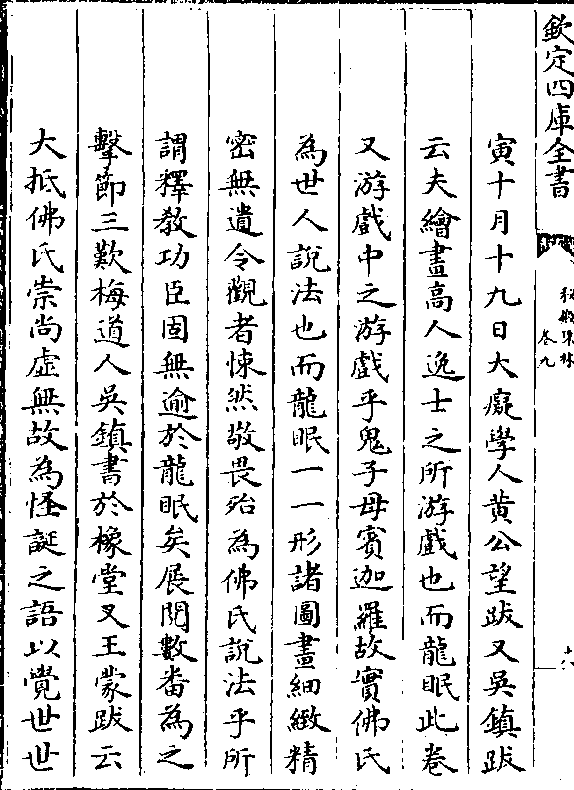 欽定四庫全書
秘殿珠林
卷九
十八
寅十月十九日大癡學人黄公望跋又吳鎮跋
云夫繪畫高人逸士之所游戲也而龍眠此卷
又游戲中之游戲乎鬼子母賓迦羅故實佛氏
為世人說法也而龍眠一一形諸圖畫細緻精
密無遺令觀者悚然敬畏殆為佛氏說法乎所
謂釋教功臣固無逾於龍眠矣展閱數番為之
擊節三歎梅道人吳鎮書於橡堂又王蒙跋云
大抵佛氏崇尚虛無故為怪誕之語以覺世世